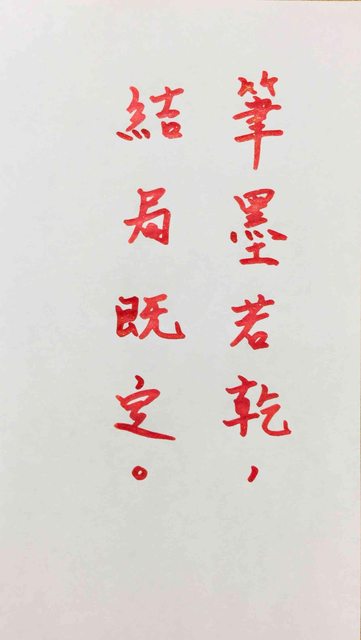 筆墨若乾，
結局既定。